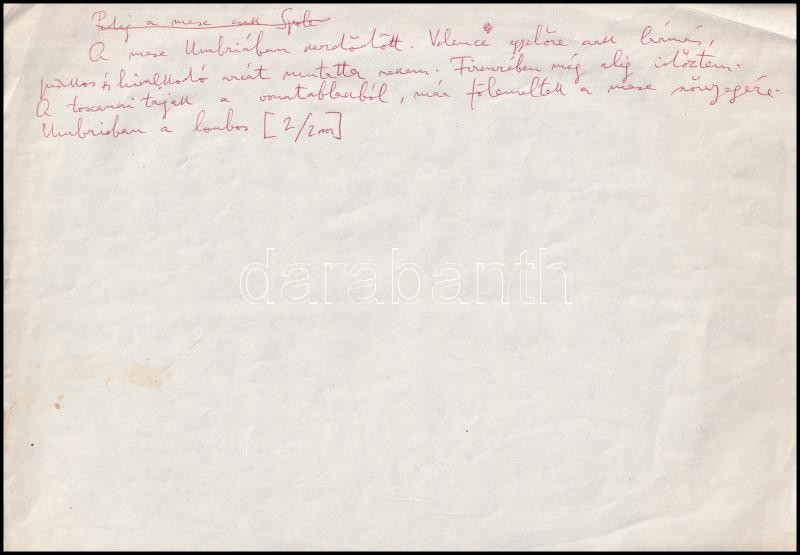 Pedig a mese csak Spole
A mese Umbriában kezdődött. Velence egyelőre csak lármás,
piszkos és hivalkodó arcát mutatta nekem. Firenzében még alig időztem.
A toscanai tájak a vonatablakból, már fölemeltek a mese szőnyegére.
Umbriában a lombos [2/2 sor]
darabanth